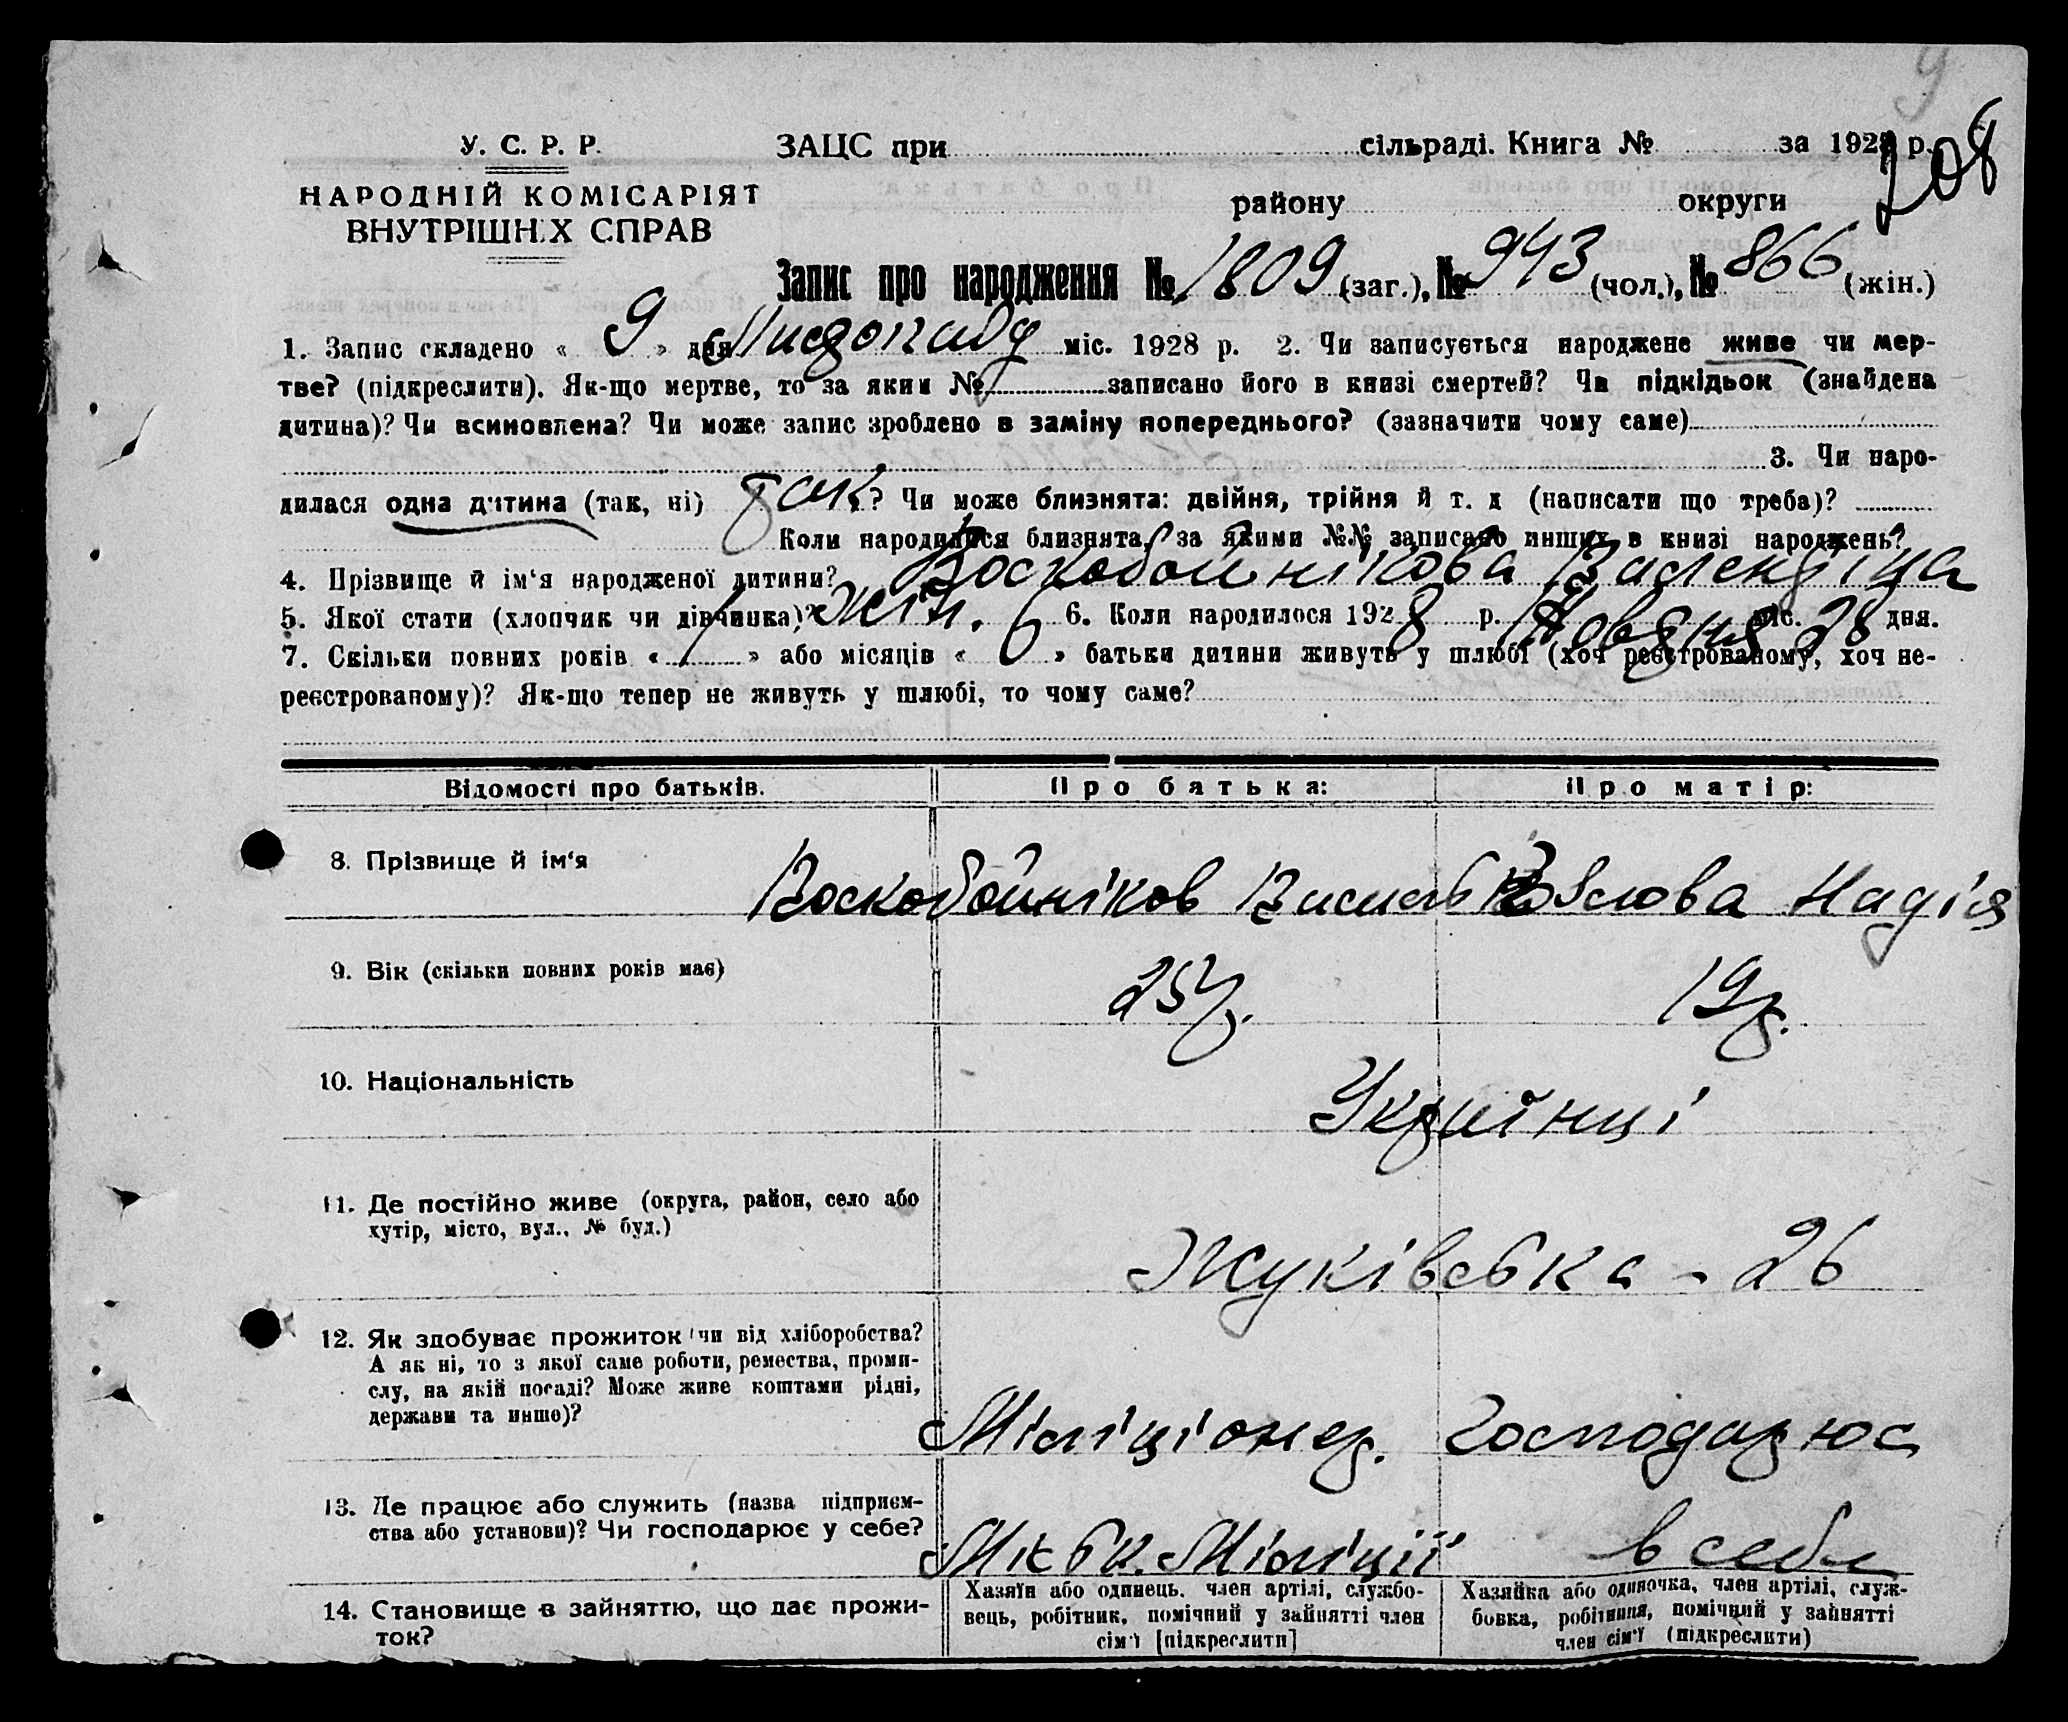 9
208
У. С. Р. Р. ЗАЦС при сільраді. Книга № за 1928 р.
НАРОДНІЙ КОМІСАРІЯТ району округи
ВНУТРІШНІХ СПРАВ
Запис про народження № 1809 (заг.), № 943 (чол.), № 866 (жін.)
1. Запис складено « 9 » дня Листопаду міс. 1928 р. 2. Чи записується народжене живе чи мер-
тве? (підкреслити). Як-що мертве, то за яким № записано його в книзі смертей? Чи підкідьок (знайдена
дитина)? Чи всиновлена? Чи може запис зроблено в заміну попереднього? (зазначити чому саме)
3. Чи наро-
дилася одна дитина (так, ні) так? Чи може близнята: двійня, трійня й т. д (написати що треба)?
Коли народилися близнята, за якими №№ записано инших в книзі народжень?
4. Прізвище й ім‘я народженої дитини? Воскобойнікова Валентіна
5. Якої стати (хлопчик чи дівчинка)? Жін. 6. Коли народилося 1928 р. Жовтня міс. 28 дня.
7. Скільки повних років « 1 » або місяців « 6 » батьки дитини живуть у шлюбі (хоч реєстрованому, хоч не-
реєстрованому)? Як-що тепер не живуть у шлюбі, то чому саме?
Відомості про батьків. Про батька: Про матір:
8. Прізвище й ім‘я
Воскобойніков Надія
9. Вік (скільки повних років має) 25р. 19р.
10. Національність
Українці
11. Де постійно живе (округа, район, село або
хутір, місто, вул., № буд.)
Жуківська - 26
12. Як здобуває прожиток чи від хліборобства?
А як ні, то з якої саме роботи, ремества, проми-
слу, на якій посаді? Може живе коштами рідні,
держави та инше)?
Міліціонер. Господарює
13. Де працює або служить (назва підприєм-
ства або установи)? Чи господарює у себе?
Міськ. Міліції в себе
14. Становище в зайняттю, що дає прожи-
ток?
Хазяїн або одинець, член артілі, службо-
вець, робітник, помічний у зайнятті член
сім‘ї [підкреслити]
Хазяйка або одиночка, член артілі, служ-
бовка, робітниця, помічний у зайнятті
член сім‘ї (підкреслити)